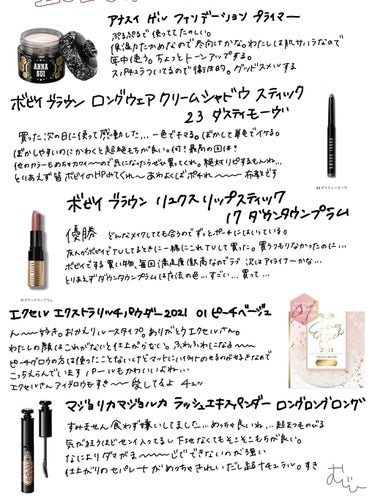 アナスイ ゲル ファンデーション プライマー
ぷるぷるで 使ってたのしい。
保湿力たかめなので冬向けかな。わたしは肌サハラなので
年中使う。ちょっとトーンアップする。
スパチュラついてるので衛生的。グッドスメルする
ANNA SUI
ボビイ ブラウン ロングウェア クリームシャドウ スティック
23 ダスティモーヴ
買った次の日に使って感動した…一色でキマる。ぼかして単色でイケる。
ぼかしやすいのにかわくと超絶もちが良い。何！最高の国は？
他のカラーもめちゃカワイ〜〜ので気になったらぜひ見てくれ〜。絶対リピするもんね…
とりあえず皆 ボビイのHPみてくれ〜 あわよくばポチれ〜 布教です
23 ダスティモーヴ
ボビイ ブラウン リュクス リップスティック
17 ダウンタウンプラム
優勝 どんなメイクしても合うのでずっとポーチにはいっている。
友人がボビイでTUしてまるときに一緒にこれTUして買った。買うつもりなかったのに…
ボビイでする買い物、毎回満足度激高なのでラブ 次はアイライナーかな…
とりあえずダウンタウンプラムは魔法の色…すごい…買って…
17 ダウンタウンプラム
エクセル エクストラリッチパウダー 2021 01 ピーチベージュ
ん〜〜好き。おかえりレースタイプ。ありがとうエクセルさん。
わたしの顔はこれがないと仕上がらない。ふわふわになる〜〜
ピーチグロウの方は使ったことないけどマットにいい付けのするのが好きなので
こっちえらんでいます パールもかわいいよね
エクセルさん アイブロウもすき〜 愛してるよ チュッ
2021
マジョリカマジョルカ ラッシュエキスパンダー ロングロングロング
すみません 食わず嫌いしてました…めっちゃ良いね…超まつものびる
気が狂うほどセンイ入ってるし 下地なくてもそこそこもちが良い。
なによりダマが
仕上がりの セパレートが めっちゃきれいだし超ナチュラル。すき